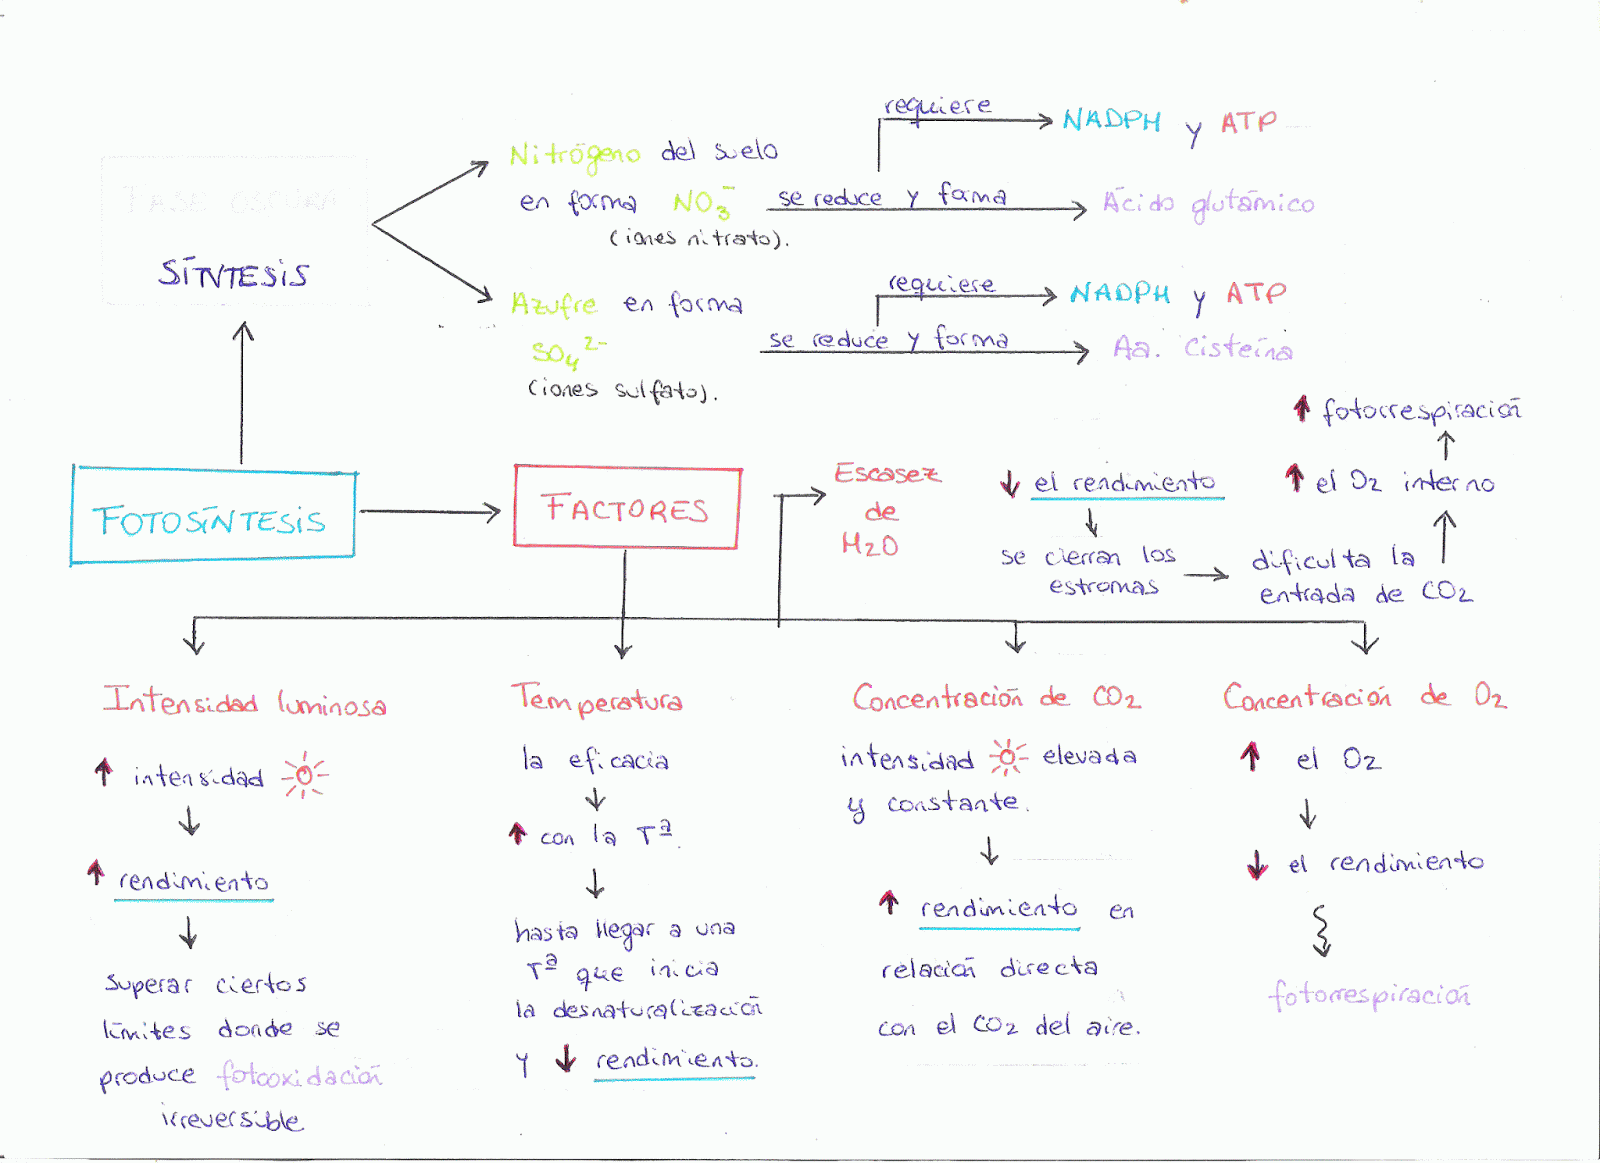 FASE OSCURA
SÍNTESIS
Nitrógeno del suelo
en forma NO₃⁻
(iones nitrato).
se reduce y forma
requiere
NADPH y ATP
Ácido glutámico
Azufre en forma
SO₄²⁻
(iones sulfato).
se reduce y forma
requiere
NADPH y ATP
Aa. Cisteína
FOTOSÍNTESIS
FACTORES
Escasez
de
H₂O
↓ el rendimiento
↓
se cierran los
estromas
→ dificulta la
entrada de CO₂
↑
↑ el O₂ interno
↑
↑ fotorrespiración
Intensidad luminosa
↑ intensidad
↓
↑ rendimiento
↓
superar ciertos
límites donde se
produce fotooxidación
irreversible
Temperatura
la eficacia
↓
↑ con la Tª.
↓
hasta llegar a una
Tª que inicia
la desnaturalización
y ↓ rendimiento.
Concentración de CO₂
intensidad elevada
y constante.
↓
↑ rendimiento en
relación directa
con el CO₂ del aire.
Concentración de O₂
↑ el O₂
↓
↓ el rendimiento
fotorrespiración